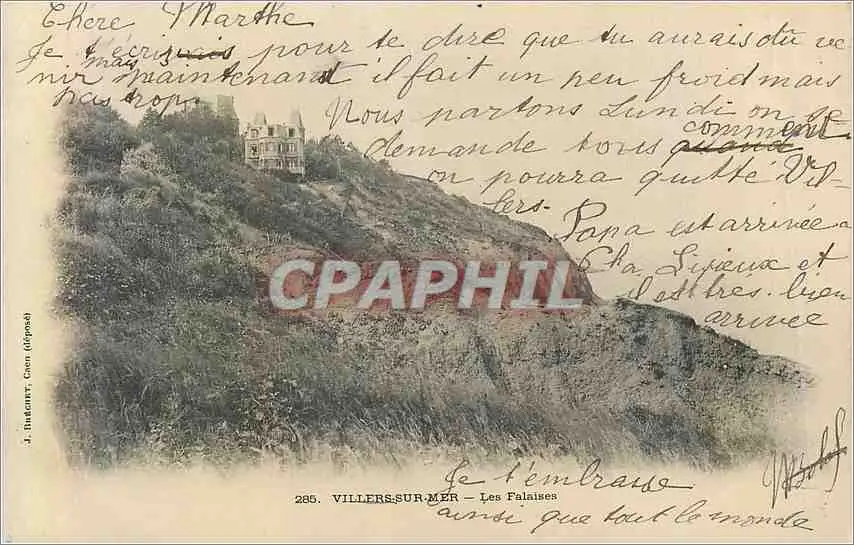 Chère Marthe
Je t'écrivais pour te dire que tu aurais dû ve
nir mais maintenant il fait un peu froid mais
pas trop.
Nous partons Lundi on se
demande tous quand comment
on pourra quitté Vil-
lers.
Papa est arrivée a
Lisieux et
il est très bien
arrivée
CPAPHIL
J. BRÉCHET, Caen (déposé)
Je t'embrasse
285. VILLERS-SUR-MER — Les Falaises
ainsi que tout le monde